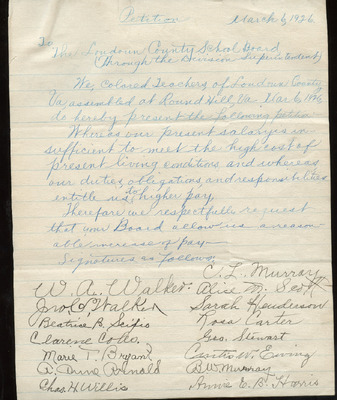 Petition March 6, 1926
To
The Loudoun County School Board
(Through the Division Superintendent)
We, Colored Teachers of Loudoun County
Va, assembled at Round Hill, Va. Mar. 6, 1926
do hereby present the following petition
Whereas our present salary is in-
sufficient to meet the high cost of
present living conditions and whereas
our duties, obligations and responsibilities
entitle us to higher pay,
Therefore we respectfully request
that your Board allow us a reason-
able increase of pay.
Signatures as follows,
W. A. Walker.
Jno. C. Walker
Beatrice B. Scipio
Clarene
Marie T. Bryant
A. Arnold
Chas. H. Willis
C. L. Murray
Alice M. Scott
Sarah Henderson
Rosa Carter
Geo. Stewart
W. Ewing
B. W. Murray
Annie E. B. Harris